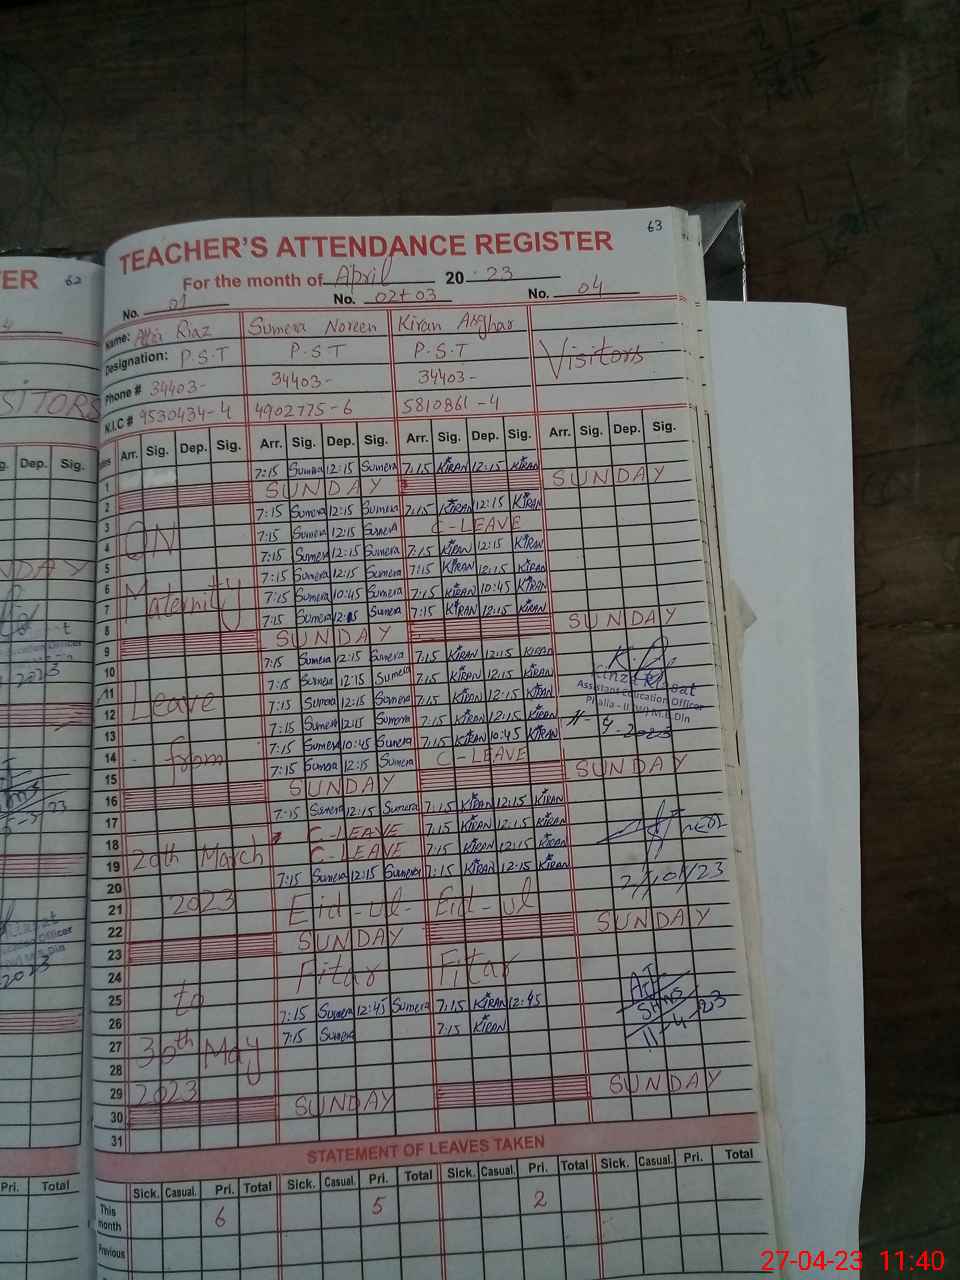 TEACHER'S ATTENDANCE REGISTER
63
For the month of April 20 23
No. 01 No. 02+03 No. 04
Name: Attia Riaz Sumera Noreen Kiran Asghar Visitors
Designation: P.S.T P.S.T P.S.T
Phone # 34403- 34403- 34403-
N.I.C # 9530434-4 4902775-6 5810861-4
Arr. Sig. Dep. Sig. Arr. Sig. Dep. Sig. Arr. Sig. Dep. Sig. Arr. Sig. Dep. Sig.
1 7:15 Sumera 12:15 Sumera 7:15 KIRAN 12:15 KIRAN
2 SUNDAY SUNDAY
3 ON 7:15 Sumera 12:15 Sumera 7:15 KIRAN 12:15 KIRAN
4 7:15 Sumera 12:15 Sumera C-LEAVE
5 7:15 Sumera 12:15 Sumera 7:15 KIRAN 12:15 KIRAN
6 Maternity 7:15 Sumera 12:15 Sumera 7:15 KIRAN 12:15 KIRAN
7 7:15 Sumera 10:45 Sumera 7:15 KIRAN 10:45 KIRAN
8 7:15 Sumera 12:15 Sumera 7:15 KIRAN 12:15 KIRAN
9 SUNDAY SUNDAY
10 7:15 Sumera 12:15 Sumera 7:15 KIRAN 12:15 KIRAN
11 7:15 Sumera 12:15 Sumera 7:15 KIRAN 12:15 KIRAN Assistant Education Officer
12 Leave 7:15 Sumera 12:15 Sumera 7:15 KIRAN 12:15 KIRAN
13 7:15 Sumera 12:15 Sumera 7:15 KIRAN 12:15 KIRAN
14 from 7:15 Sumera 10:45 Sumera 7:15 KIRAN 10:45 KIRAN
15 7:15 Sumera 12:15 Sumera C-LEAVE
16 SUNDAY SUNDAY
17 7:15 Sumera 12:15 Sumera 7:15 KIRAN 12:15 KIRAN
18 C-LEAVE 7:15 KIRAN 12:15 KIRAN
19 20th March C-LEAVE 7:15 KIRAN 12:15 KIRAN
20 7:15 Sumera 12:15 Sumera 7:15 KIRAN 12:15 KIRAN
21 2023 Eid-ul- Eid-ul
22
23 SUNDAY SUNDAY
24 Fitar Fitar
25 to 7:15 Sumera 12:45 Sumera 7:15 KIRAN 12:45
26 7:15 Sumera 7:15 KIRAN
27 30th May
28
29 2023
30 SUNDAY SUNDAY
31
STATEMENT OF LEAVES TAKEN
Sick. Casual. Pri. Total Sick. Casual. Pri. Total Sick. Casual. Pri. Total Sick. Casual. Pri. Total
This month 6 5 2
Previous
62
SITORS
Dep. Sig.
Pri. Total
27-04-23 11:40